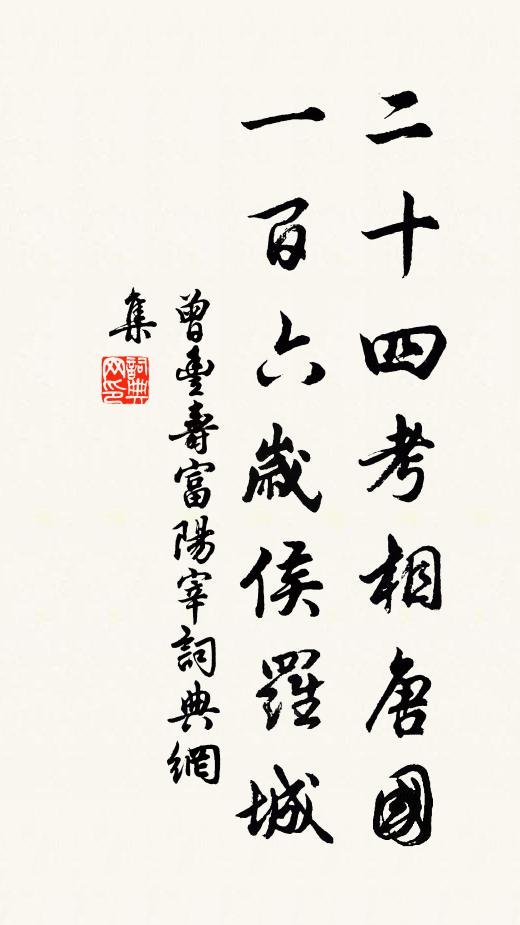 二十四考相唐國
一百六歲侯羅城
曾豐壽富陽宰詞典網
集
詞典
网印